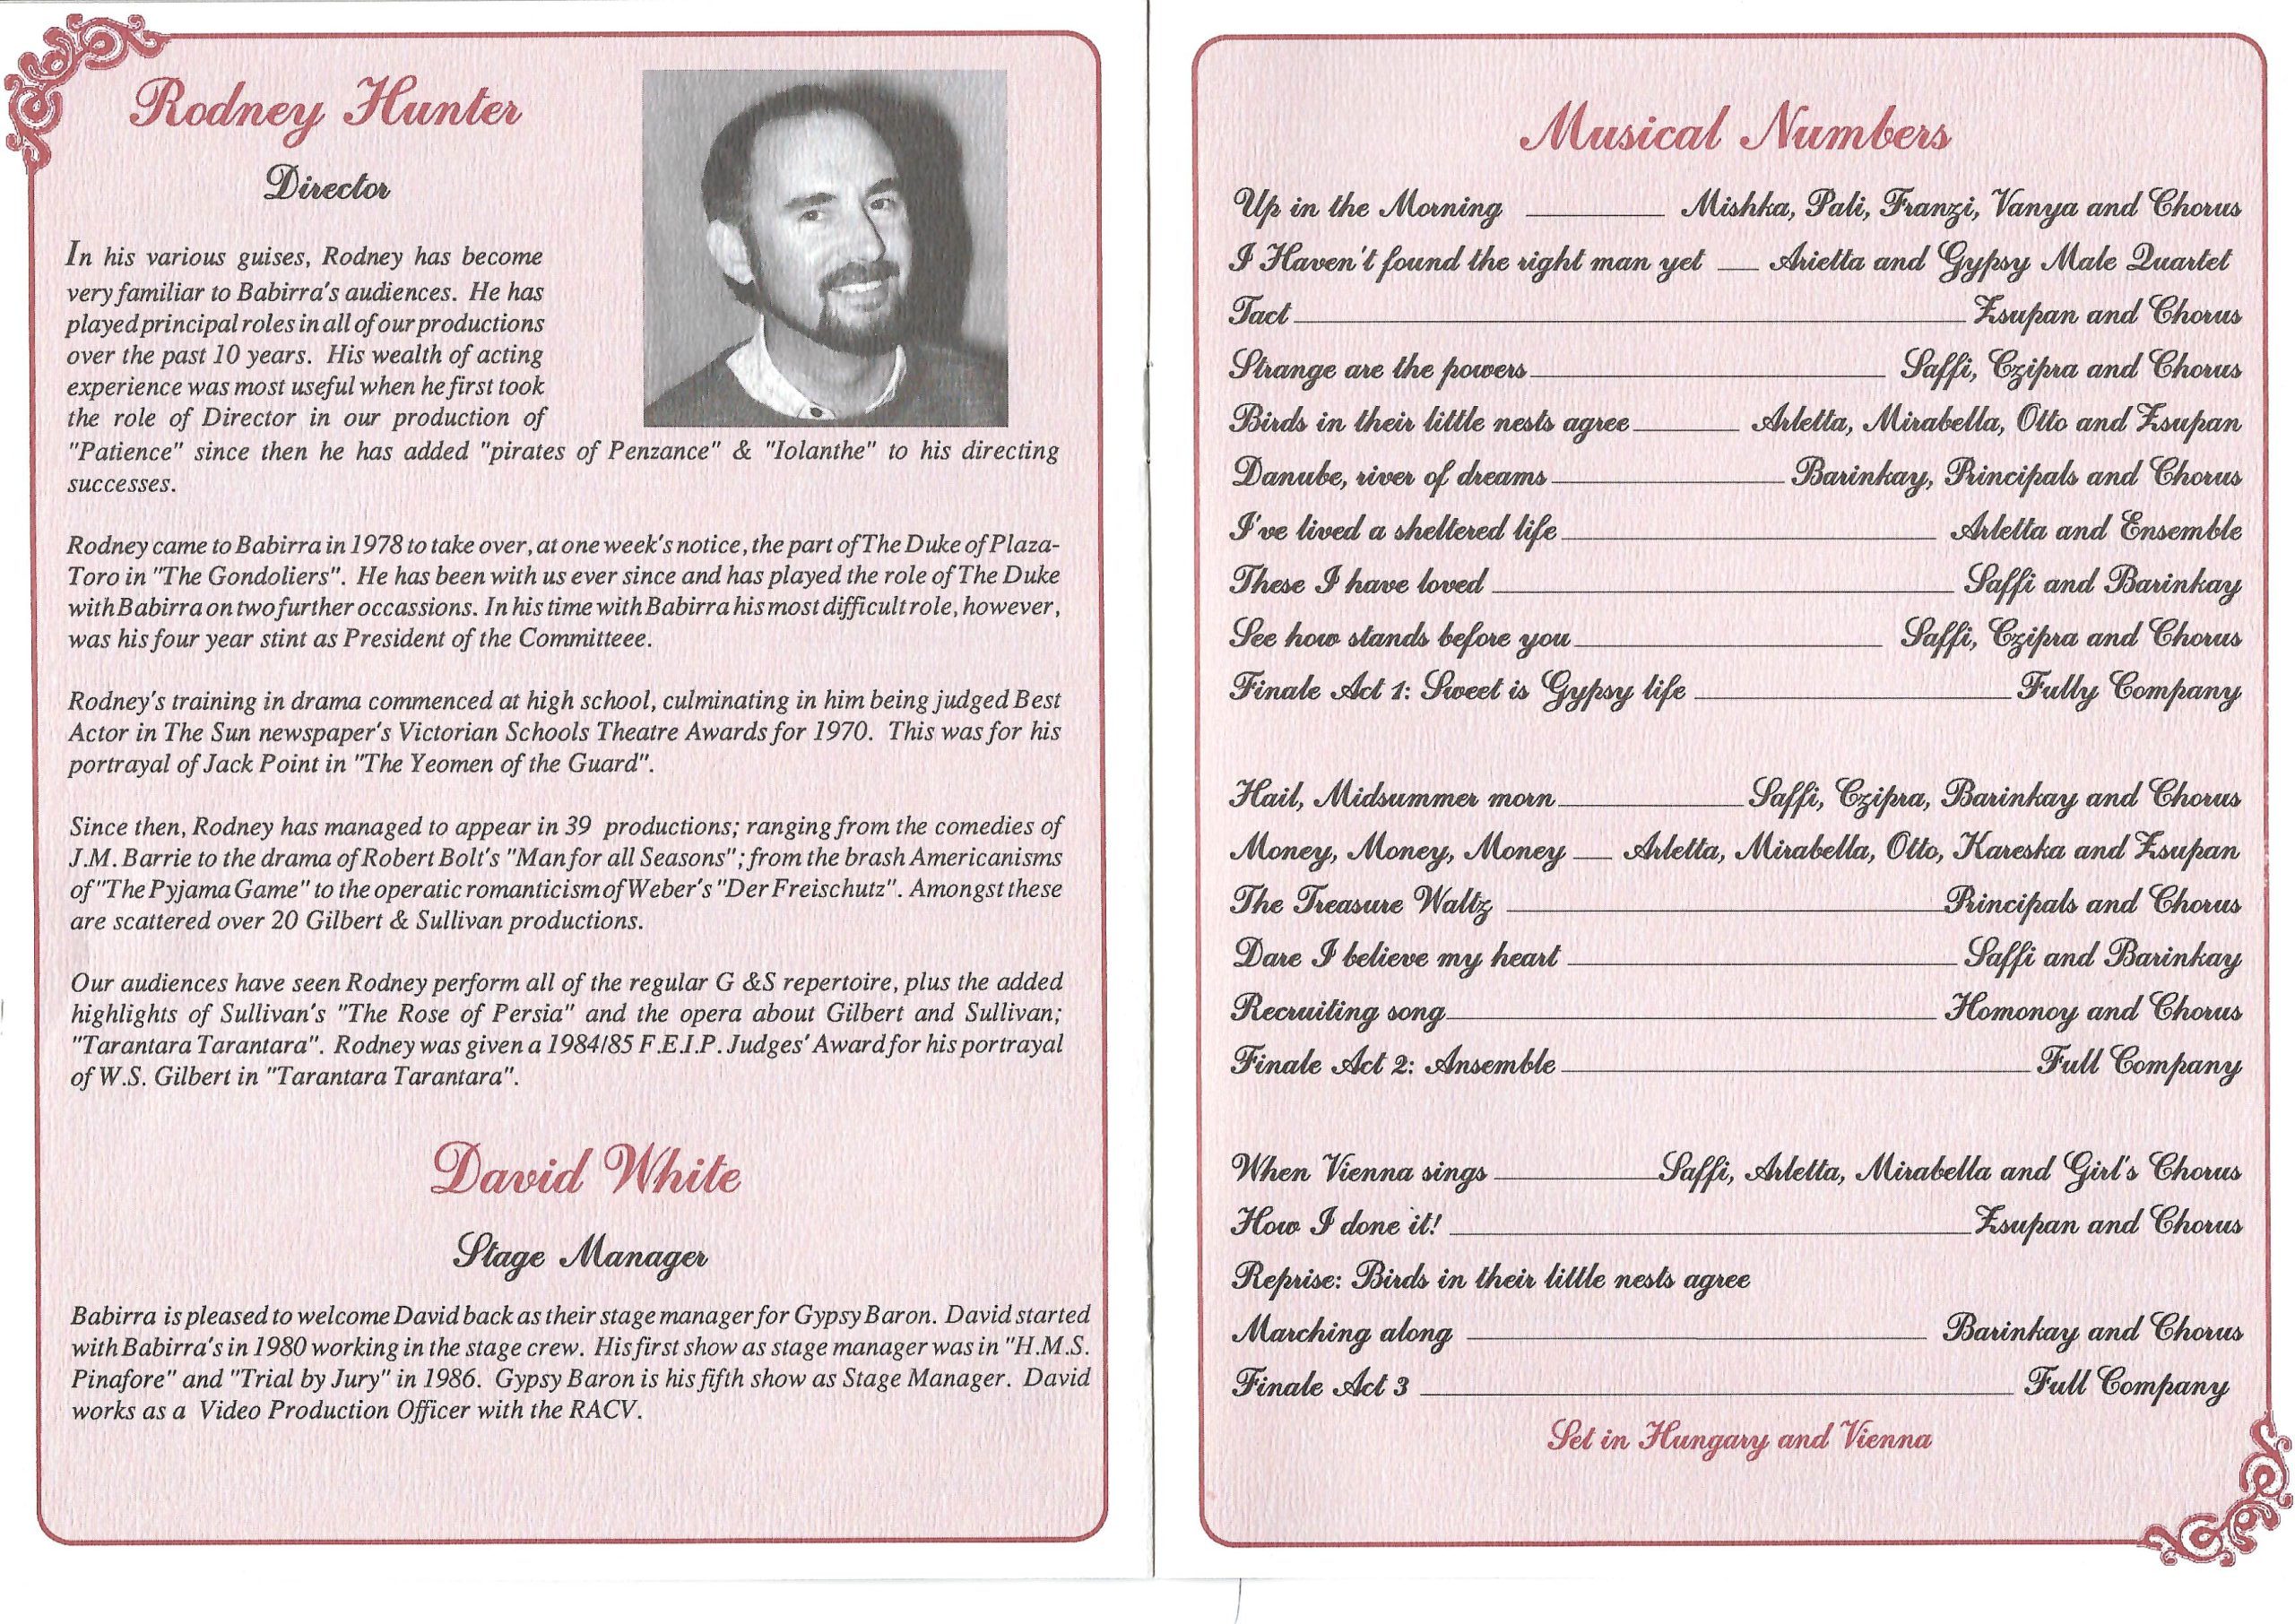 Rodney Hunter
Director
In his various guises, Rodney has become
very familiar to Babirra's audiences. He has
played principal roles in all of our productions
over the past 10 years. His wealth of acting
experience was most useful when he first took
the role of Director in our production of
"Patience" since then he has added "pirates of Penzance" & "Iolanthe" to his directing
successes.
Rodney came to Babirra in 1978 to take over, at one week's notice, the part of The Duke of Plaza-
Toro in "The Gondoliers". He has been with us ever since and has played the role of The Duke
with Babirra on two further occassions. In his time with Babirra his most difficult role, however,
was his four year stint as President of the Committeee.
Rodney's training in drama commenced at high school, culminating in him being judged Best
Actor in The Sun newspaper's Victorian Schools Theatre Awards for 1970. This was for his
portrayal of Jack Point in "The Yeomen of the Guard".
Since then, Rodney has managed to appear in 39 productions; ranging from the comedies of
J.M. Barrie to the drama of Robert Bolt's "Man for all Seasons"; from the brash Americanisms
of "The Pyjama Game" to the operatic romanticism of Weber's "Der Freischutz". Amongst these
are scattered over 20 Gilbert & Sullivan productions.
Our audiences have seen Rodney perform all of the regular G &S repertoire, plus the added
highlights of Sullivan's "The Rose of Persia" and the opera about Gilbert and Sullivan;
"Tarantara Tarantara". Rodney was given a 1984/85 F.E.I.P. Judges' Award for his portrayal
of W.S. Gilbert in "Tarantara Tarantara".
David White
Stage Manager
Babirra is pleased to welcome David back as their stage manager for Gypsy Baron. David started
with Babirra's in 1980 working in the stage crew. His first show as stage manager was in "H.M.S.
Pinafore" and "Trial by Jury" in 1986. Gypsy Baron is his fifth show as Stage Manager. David
works as a Video Production Officer with the RACV.
Musical Numbers
Up in the Morning Mishka, Pali, Franzi, Vanya and Chorus
I Haven't found the right man yet Arietta and Gypsy Male Quartet
Tact Zsupan and Chorus
Strange are the powers Saffi, Czipra and Chorus
Birds in their little nests agree Arletta, Mirabella, Otto and Zsupan
Danube, river of dreams Barinkay, Principals and Chorus
I've lived a sheltered life Arletta and Ensemble
These I have loved Saffi and Barinkay
See how stands before you Saffi, Czipra and Chorus
Finale Act 1: Sweet is Gypsy life Fully Company
Hail, Midsummer morn Saffi, Czipra, Barinkay and Chorus
Money, Money, Money Arletta, Mirabella, Otto, Kareska and Zsupan
The Treasure Waltz Principals and Chorus
Dare I believe my heart Saffi and Barinkay
Recruiting song Homonoy and Chorus
Finale Act 2: Ansemble Full Company
When Vienna sings Saffi, Arletta, Mirabella and Girl's Chorus
How I done it! Zsupan and Chorus
Reprise: Birds in their little nests agree
Marching along Barinkay and Chorus
Finale Act 3 Full Company
Set in Hungary and Vienna